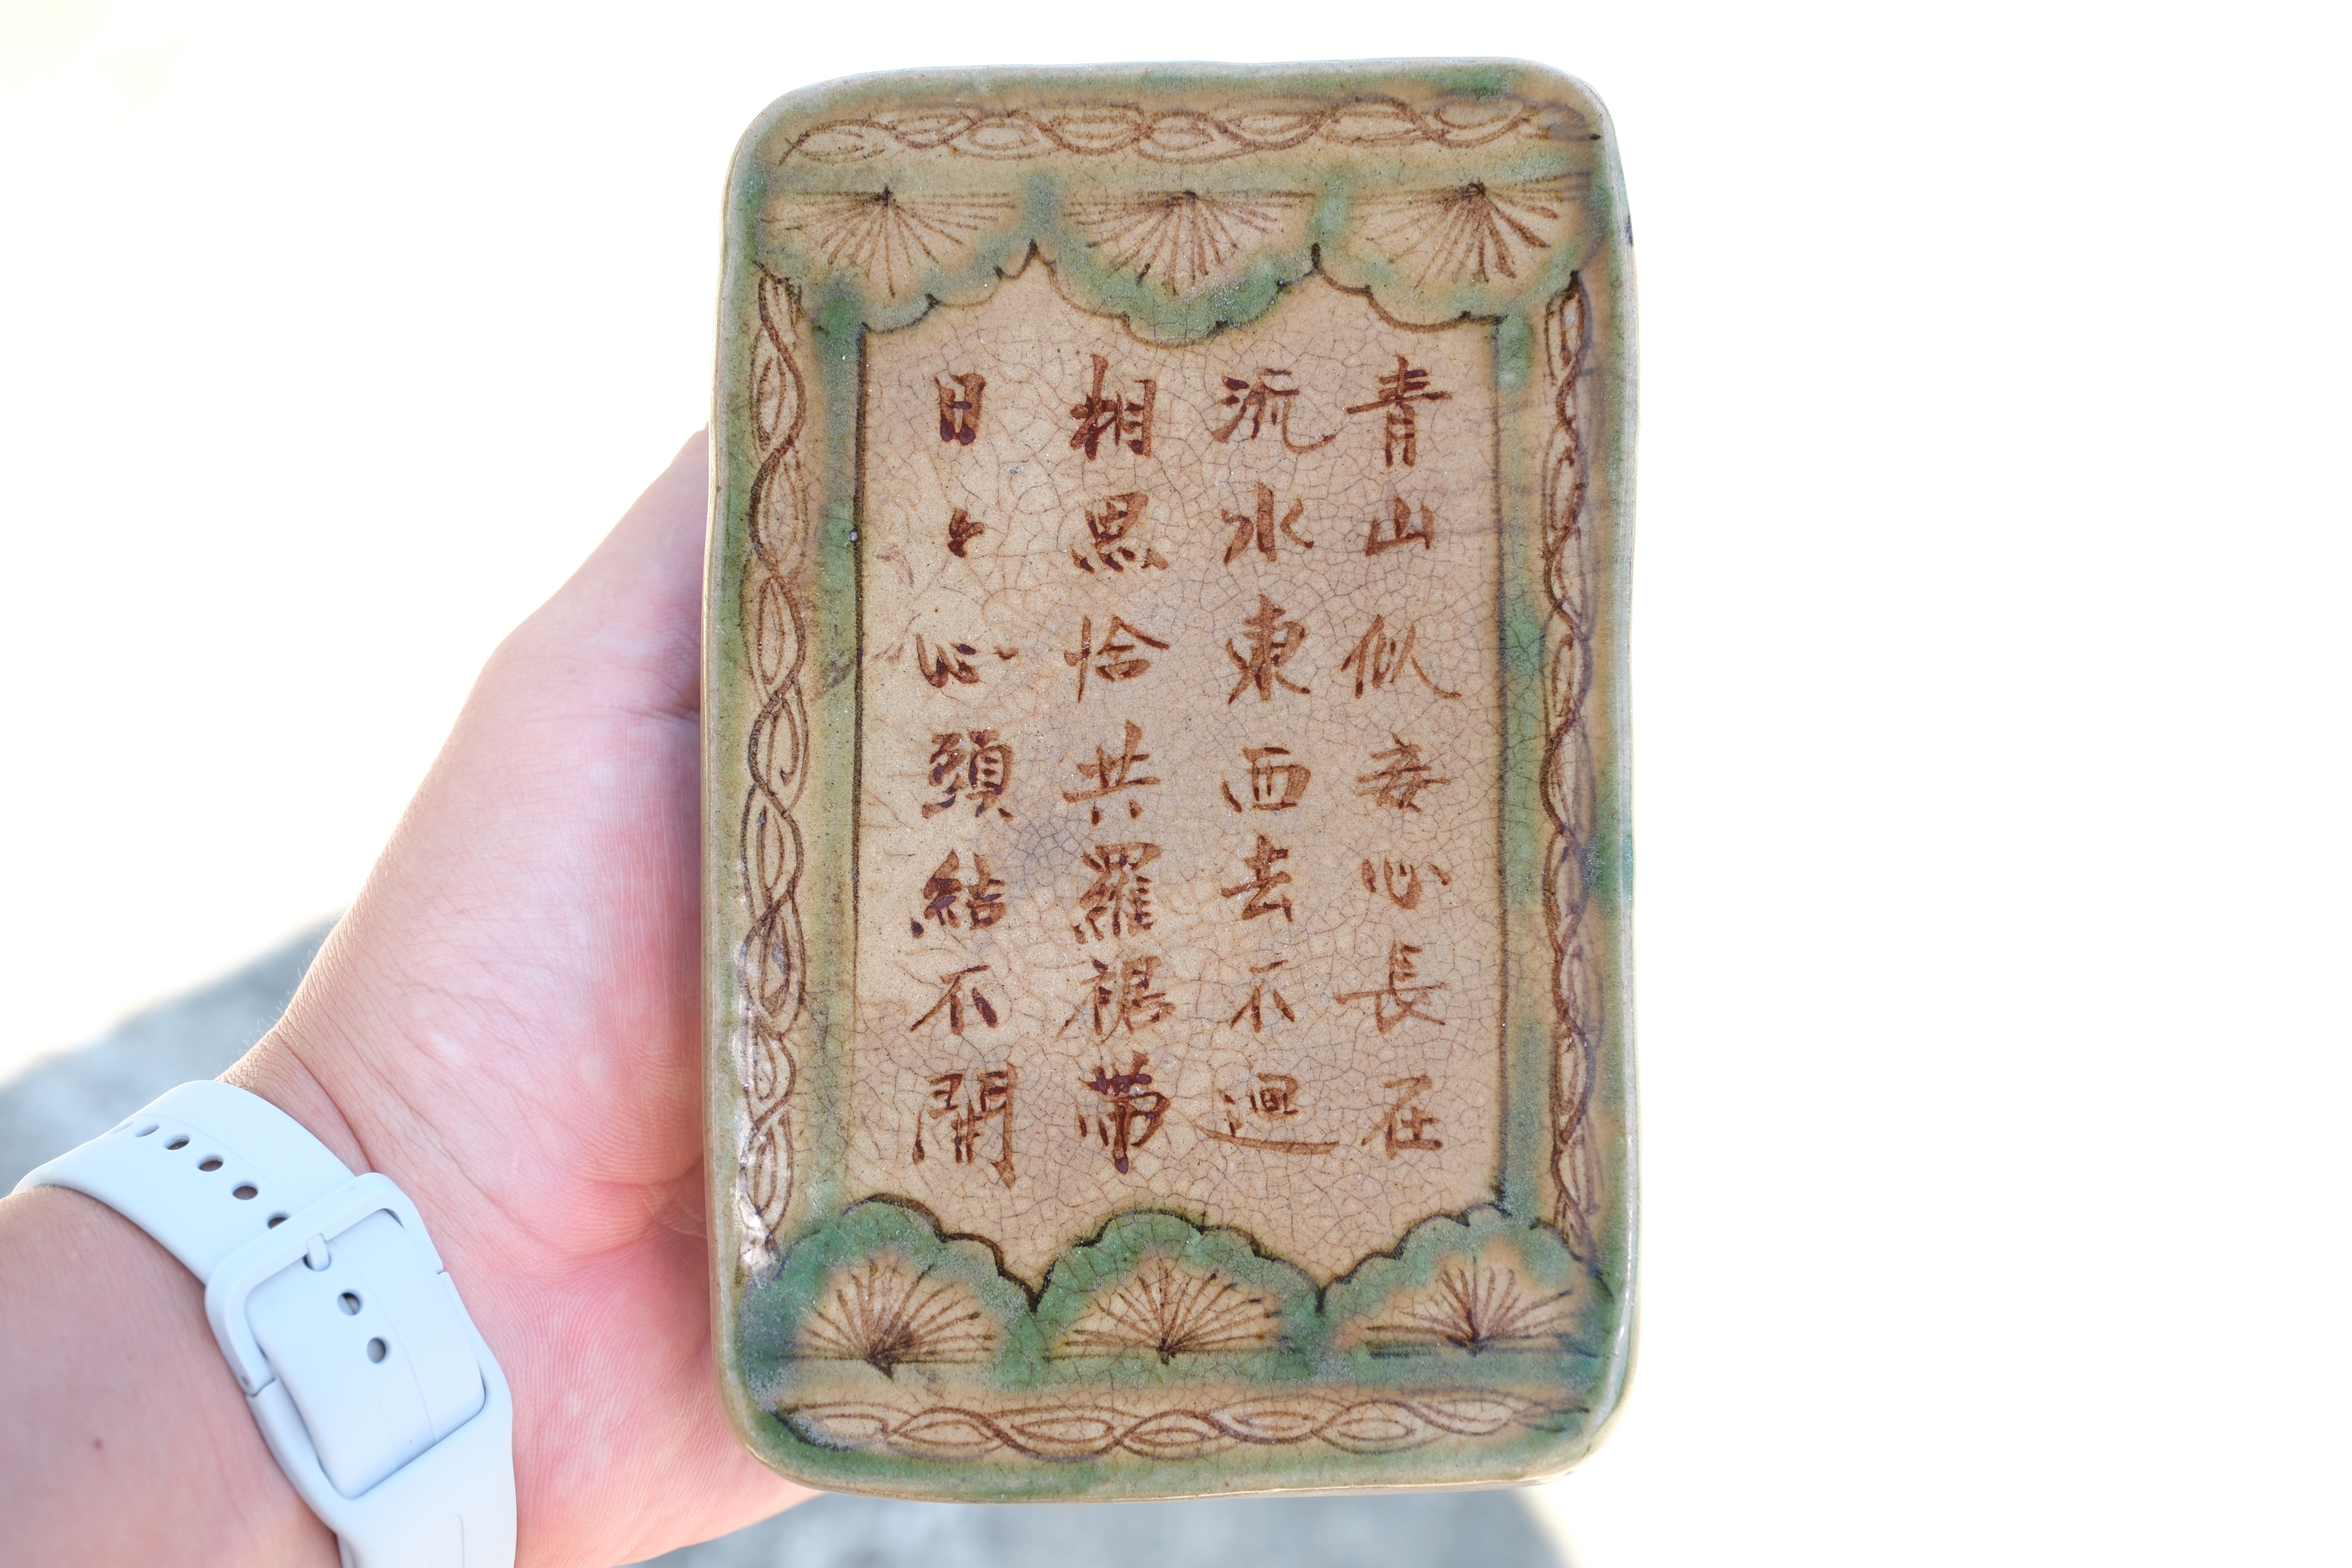 青山似妾心長在
流水東西去不迴
相思恰共羅裙帶
日〻心頭結不開